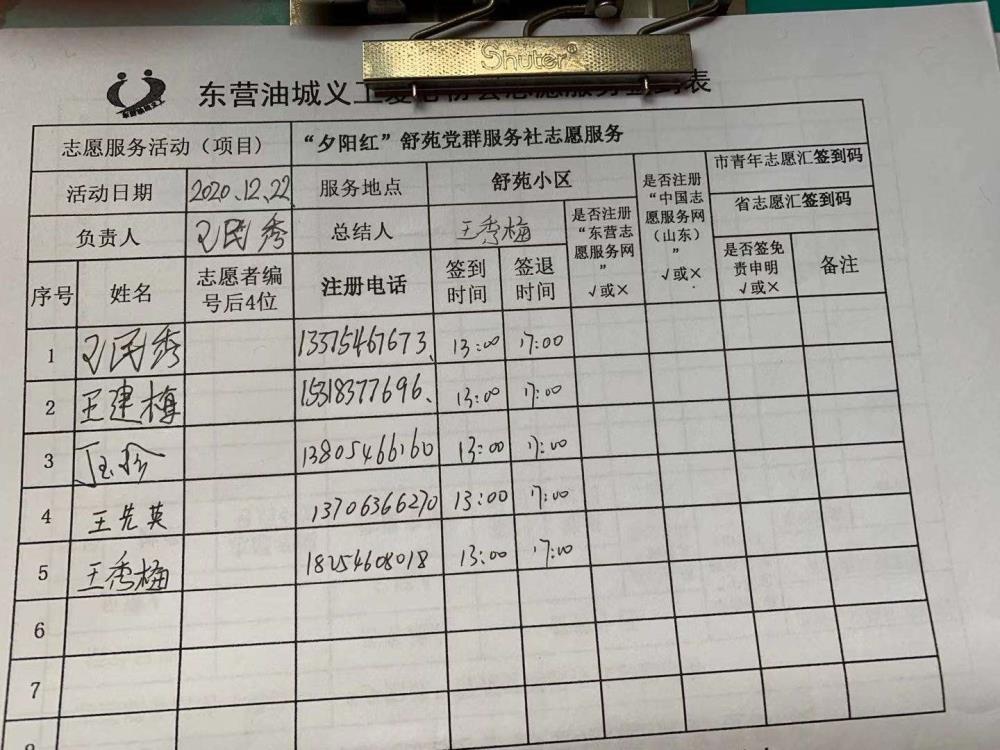 Shuter®
东营油城义工爱心协会志愿服务签到表
志愿服务活动（项目） “夕阳红”舒苑党群服务社志愿服务
活动日期 2020.12.22 服务地点 舒苑小区 是否注册“中国志愿服务网（山东）”√或× 市青年志愿汇签到码
负责人 民秀 总结人 王秀梅 是否注册“东营志愿服务网”√或× 省志愿汇签到码
序号 姓名 志愿者编号后4位 注册电话 签到时间 签退时间 是否签免责申明√或× 备注
1 民秀 13375467673 13:00 17:00
2 王建梅 15318377696 13:00 17:00
3 13805466160 13:00 17:00
4 王先英 13706366270 13:00 17:00
5 王秀梅 18254608018 13:00 17:00
6
7